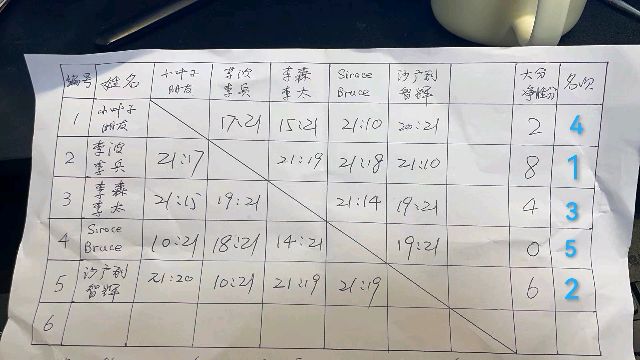 编号 姓名 小叶子 朋友 李波 李兵 李森 李太 Sirace Bruce 沙户利 智辉 大分 净胜分 名次
1 小叶子 朋友 17:21 15:21 21:10 20:21 2 4
2 李波 李兵 21:17 21:19 21:18 21:10 8 1
3 李森 李太 21:15 19:21 21:14 19:21 4 3
4 Sirace Bruce 10:21 18:21 14:21 19:21 0 5
5 智辉 21:20 10:21 21:19 21:19 6 2
6